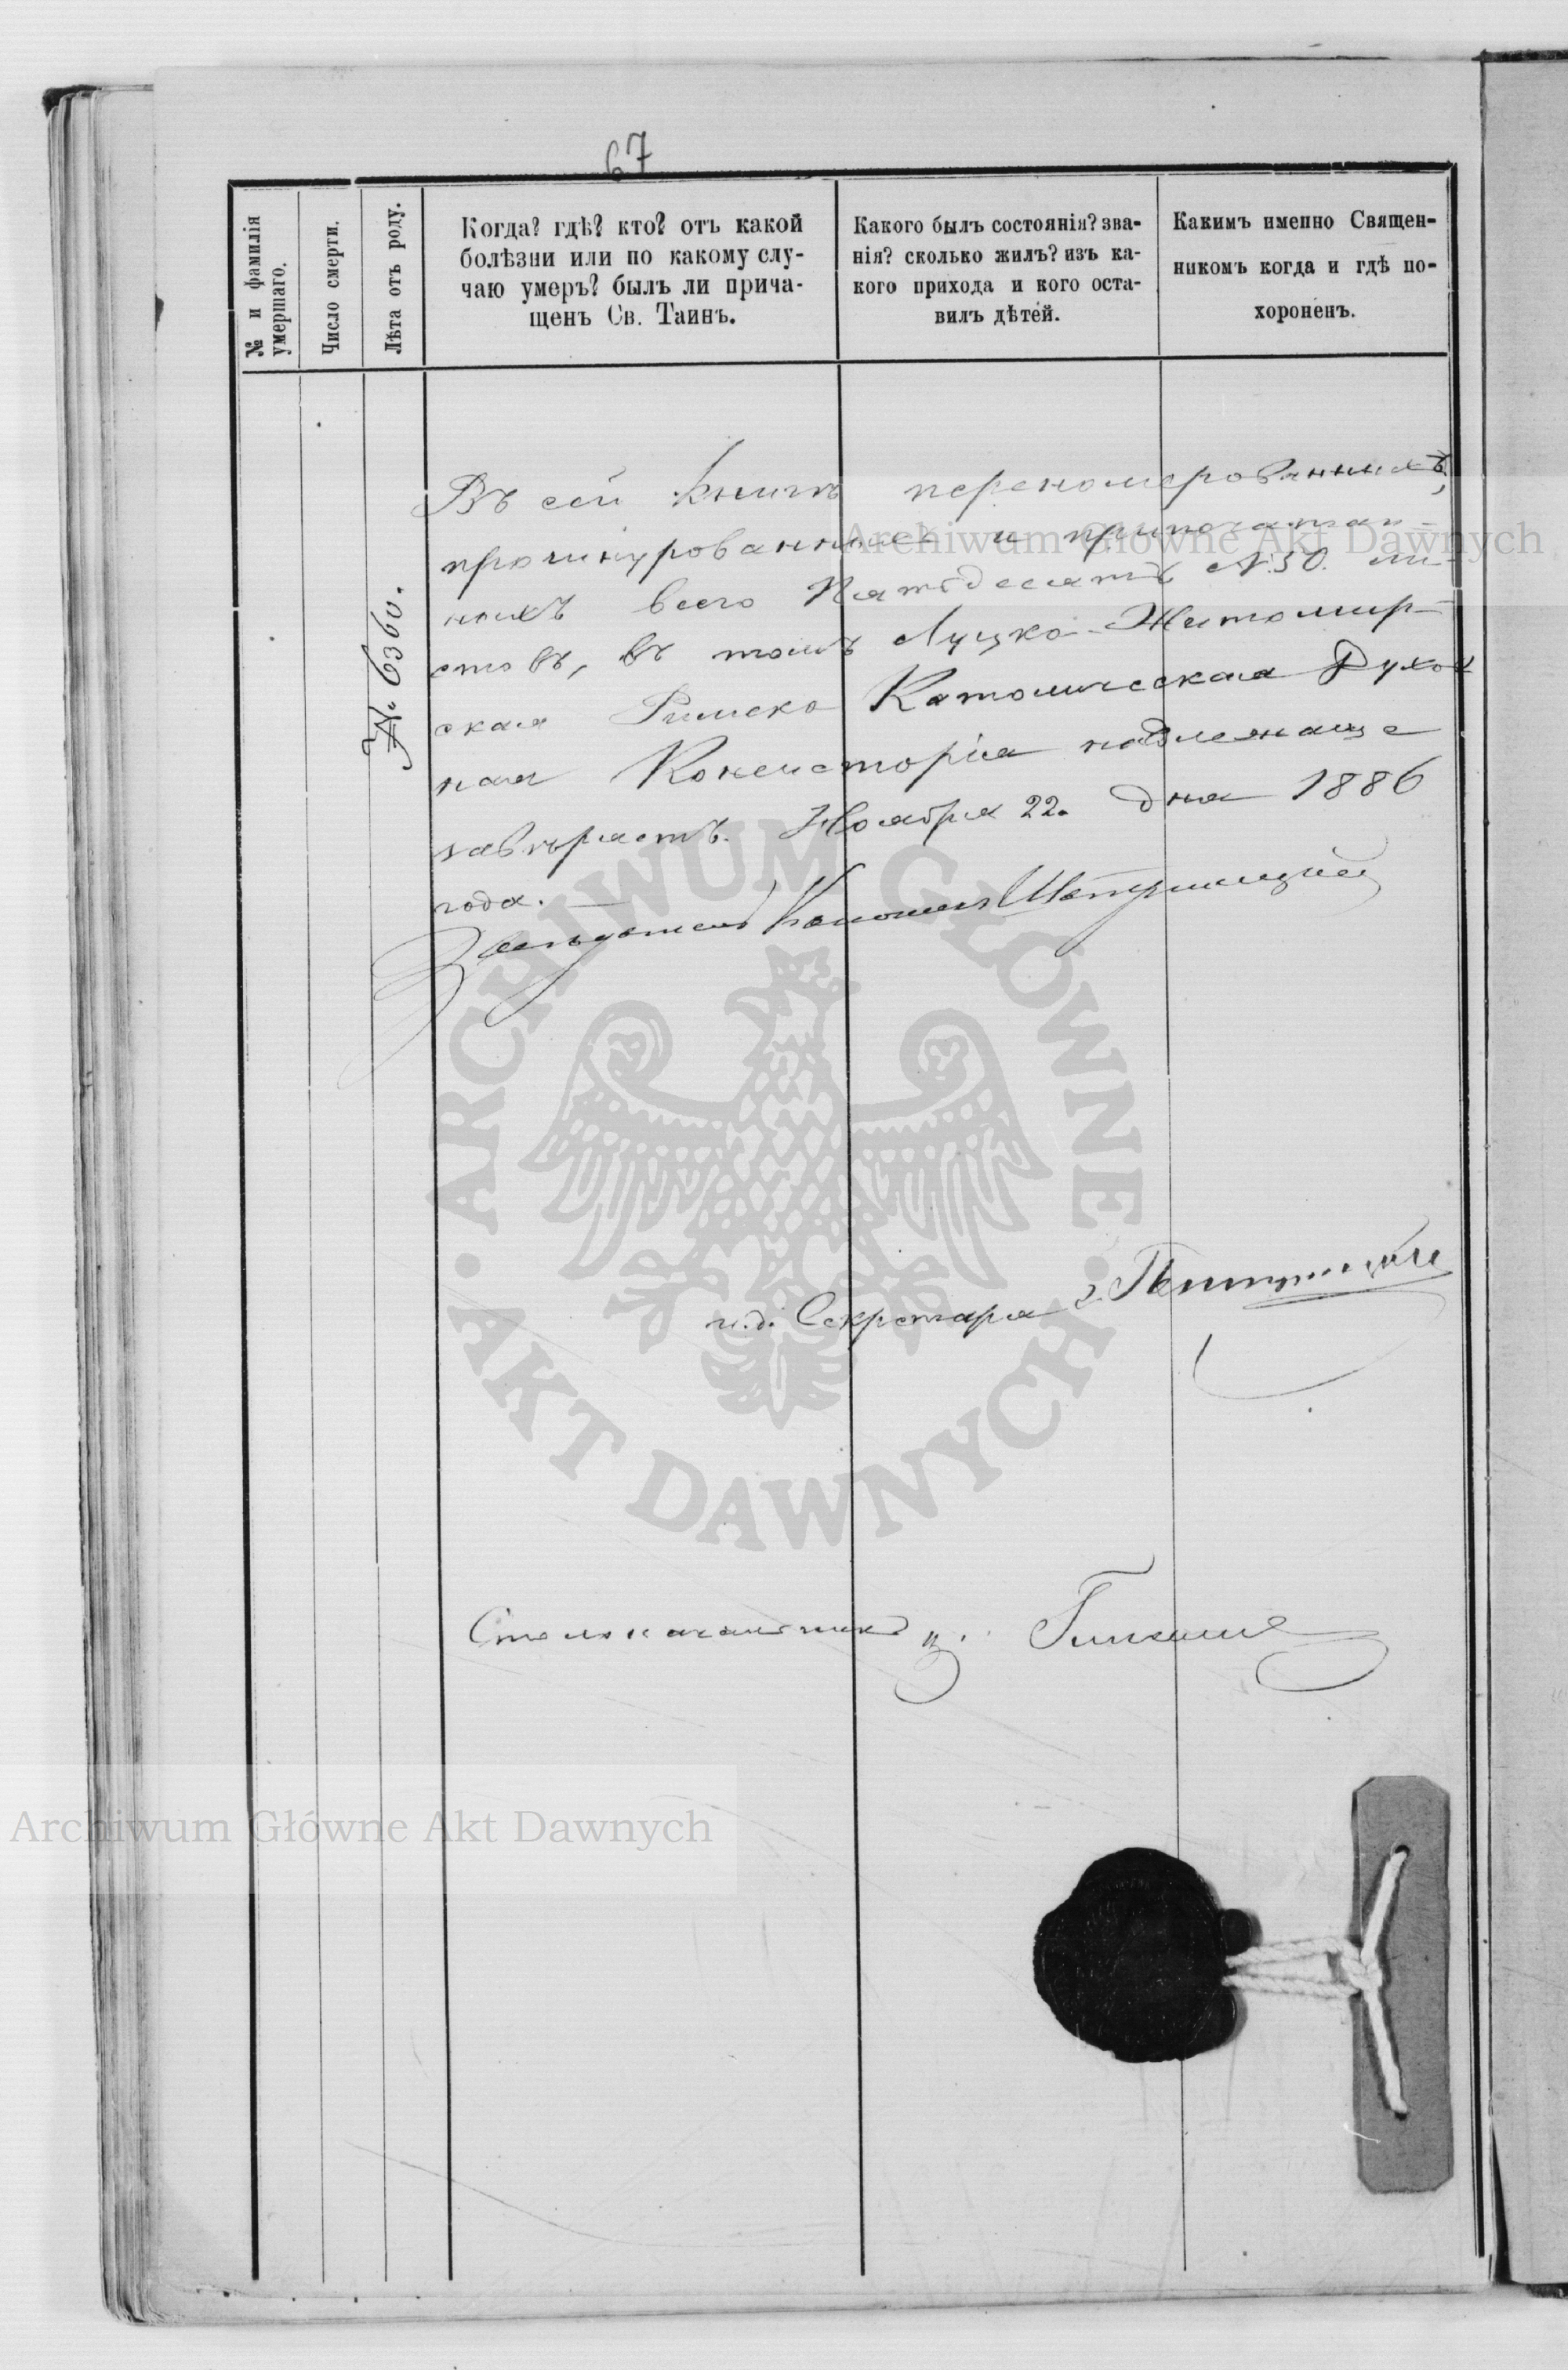 67
№ и фамилія
умершаго.
Число смерти.
Лѣта отъ роду.
Когда? гдѣ? кто? отъ какой
болѣзни или по какому слу-
чаю умеръ? былъ ли прича-
щенъ Св. Таинъ.
Какого былъ состоянія? зва-
нія? сколько жилъ? изъ ка-
кого прихода и кого оста-
вилъ дѣтей.
Какимъ именно Священ-
никомъ когда и гдѣ по-
хороненъ.
№ 6360.
Въ сей книгѣ переномерованныхъ,
прошнурованныхъ и припечатан-
ныхъ всего Пятьдесятъ N. 50. ли-
стовъ, въ томъ Луцко-Житомир-
ская Римско Католическая Духов
ная Консисторія надлежаще
завѣряетъ. Ноября 22. дня 1886
года.
Засѣдатель Каноникъ
и.д. Секретаря
Столоначальникъ
Archiwum Główne Akt Dawnych
Archiwum Główne Akt Dawnych
ARCHIWUM GŁÓWNE AKT DAWNYCH